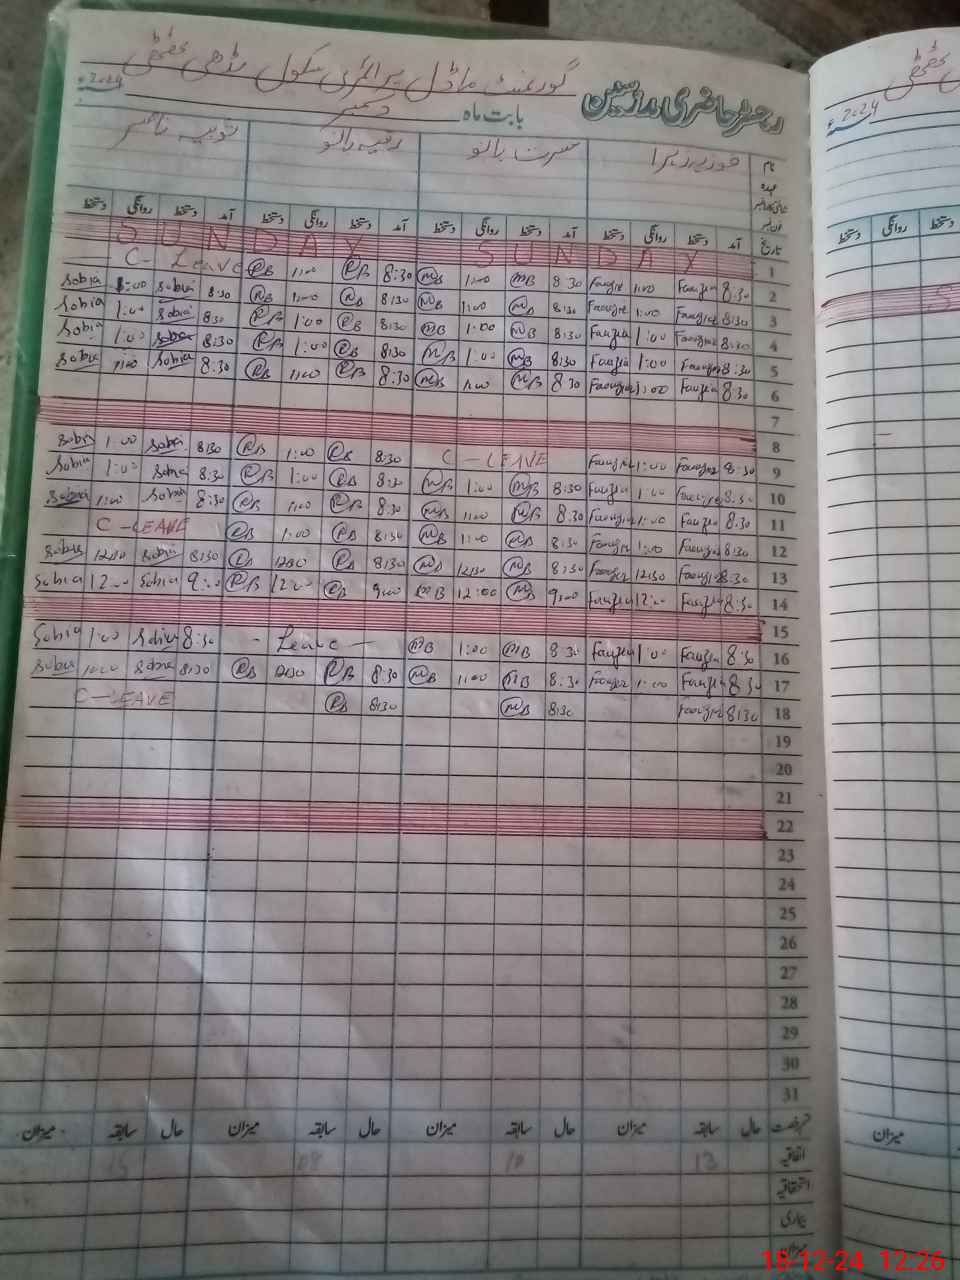 گورنمنٹ ماڈل پرائمری سکول مڈھی
رجسٹر حاضری مدرسین بابت ماہ دسمبر 2024ء
نام فوزیہ زہرا مسرت بانو رضیہ بانو ثوبیہ ناصر
عہدہ
تاریخ آمد دستخط روانگی دستخط آمد دستخط روانگی دستخط آمد دستخط روانگی دستخط آمد دستخط روانگی دستخط
SUNDAY SUNDAY 1
C- Leave RB 1:00 RB 8:30 MB 1:00 MB 8:30 Fauzia 1:00 Fauzia 8:30 2
Sobia 1:00 Sobia 8:30 RB 1:00 RB 8:30 MB 1:00 MB 8:30 Fauzia 1:00 Fauzia 8:30 3
Sobia 1:00 Sobia 8:30 RB 1:00 RB 8:30 MB 1:00 MB 8:30 Fauzia 1:00 Fauzia 8:30 4
Sobia 1:00 Sobia 8:30 RB 1:00 RB 8:30 MB 1:00 MB 8:30 Fauzia 1:00 Fauzia 8:30 5
Sobia 11:00 Sobia 8:30 RB 11:00 RB 8:30 MB 11:00 MB 8:30 Fauzia 11:00 Fauzia 8:30 6
7
8
Sobia 1:00 Sobia 8:30 RB 1:00 RB 8:30 C-LEAVE Fauzia 1:00 Fauzia 8:30 9
Sobia 1:00 Sobia 8:30 RB 1:00 RB 8:30 MB 1:00 MB 8:30 Fauzia 1:00 Fauzia 8:30 10
Sobia 1:00 Sobia 8:30 RB 1:00 RB 8:30 MB 1:00 MB 8:30 Fauzia 1:00 Fauzia 8:30 11
C-LEAVE RB 1:00 RB 8:30 MB 1:00 MB 8:30 Fauzia 1:00 Fauzia 8:30 12
Sobia 12:30 Sobia 8:30 RB 12:30 RB 8:30 MB 12:30 MB 8:30 Fauzia 12:30 Fauzia 8:30 13
Sobia 12:00 Sobia 9:00 RB 12:00 RB 9:00 MB 12:00 MB 9:00 Fauzia 12:00 Fauzia 8:30 14
15
Sobia 1:00 Sobia 8:30 - Leave - MB 1:00 MB 8:30 Fauzia 1:00 Fauzia 8:30 16
Sobia Sobia 8:30 RB RB 8:30 MB 1:00 MB 8:30 Fauzia 1:00 Fauzia 8:30 17
C-LEAVE RB 8:30 MB 8:30 Fauzia 8:30 18
19
20
21
22
23
24
25
26
27
28
29
30
31
قسم رخصت حال سابقہ میزان حال سابقہ میزان حال سابقہ میزان حال سابقہ میزان
اتفاقیہ 13 10 08 15
استحقاقیہ
بیماری
میزان
2024ء
دستخط روانگی دستخط
S
میزان
18-12-24 12:26